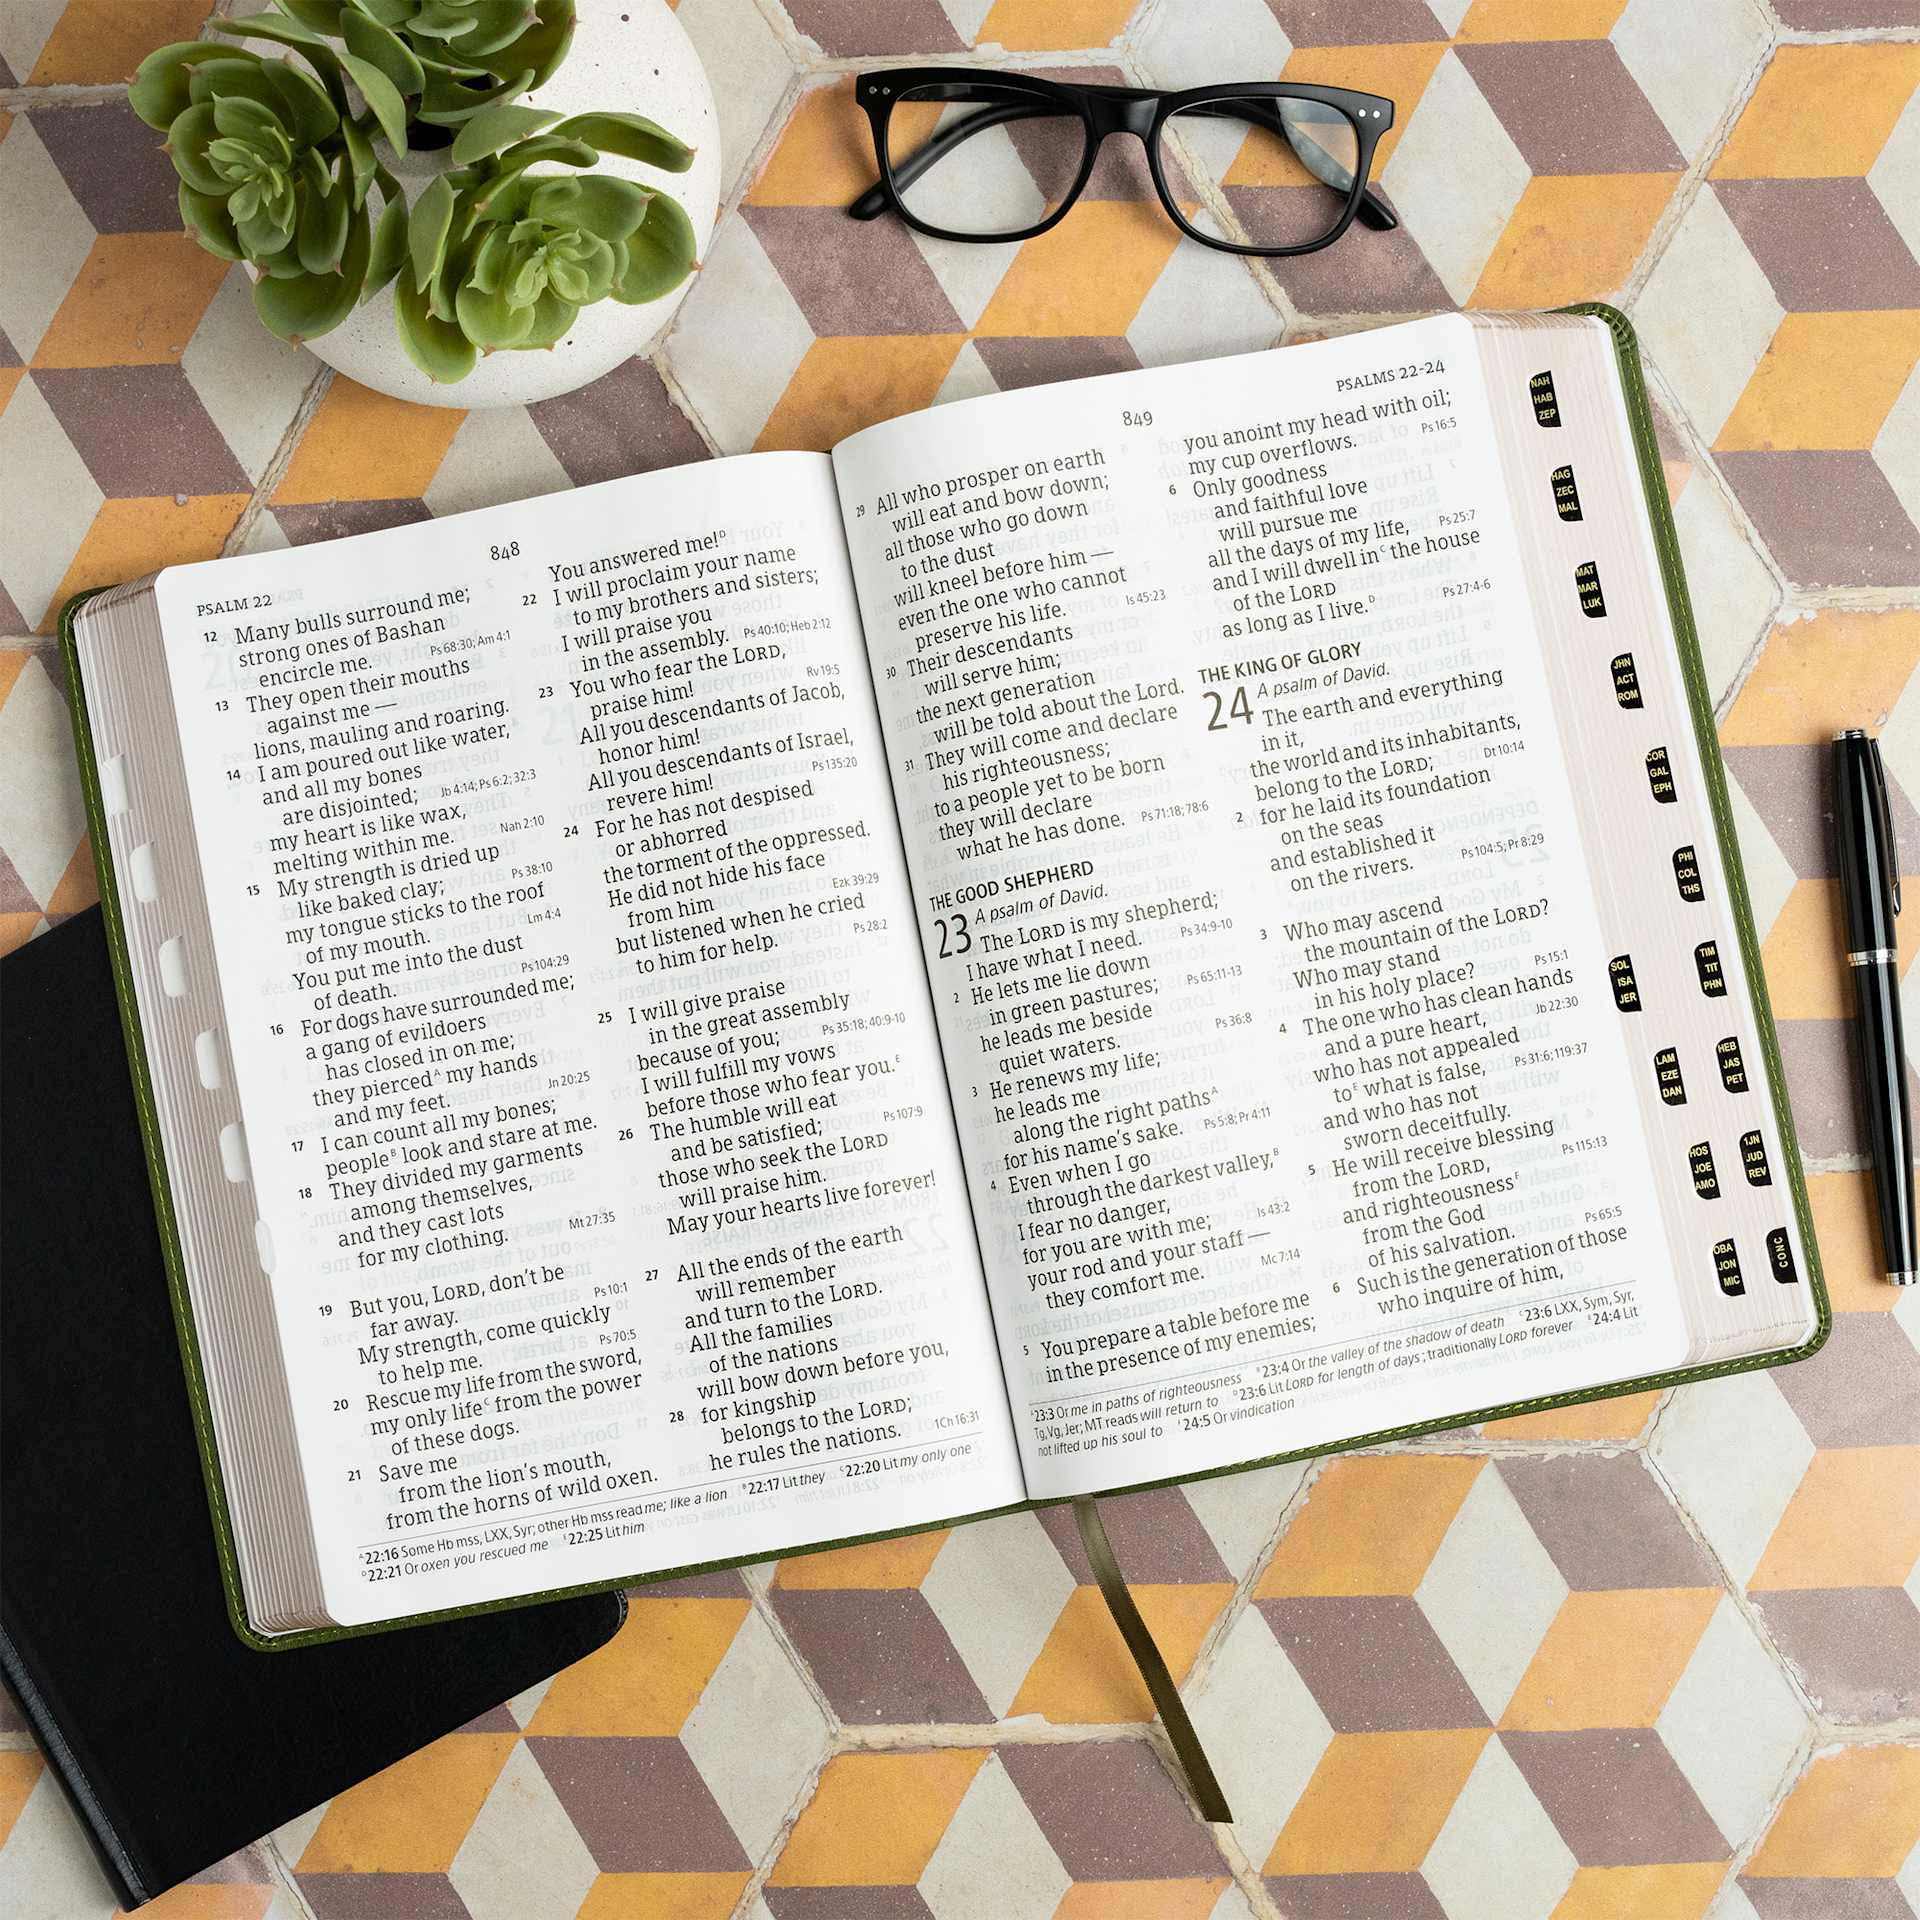 PSALM 22
848
12 Many bulls surround me;
strong ones of Bashan
encircle me. Ps 68:30; Am 4:1
13 They open their mouths
against me —
lions, mauling and roaring.
14 I am poured out like water,
and all my bones
are disjointed; Jb 4:14; Ps 6:2; 32:3
my heart is like wax,
melting within me. Nah 2:10
15 My strength is dried up
like baked clay; Ps 38:10
my tongue sticks to the roof
of my mouth. Lm 4:4
You put me into the dust
of death. Ps 104:29
16 For dogs have surrounded me;
a gang of evildoers
has closed in on me;
they pierced^A my hands
and my feet. Jn 20:25
17 I can count all my bones;
people^B look and stare at me.
18 They divided my garments
among themselves,
and they cast lots
for my clothing. Mt 27:35
19 But you, LORD, don't be
far away. Ps 10:1
My strength, come quickly
to help me. Ps 70:5
20 Rescue my life from the sword,
my only life^C from the power
of these dogs.
21 Save me
from the lion's mouth,
from the horns of wild oxen.
You answered me!^D
22 I will proclaim your name
to my brothers and sisters;
I will praise you
in the assembly. Ps 40:10; Heb 2:12
23 You who fear the LORD,
praise him! Rv 19:5
All you descendants of Jacob,
honor him!
All you descendants of Israel,
revere him! Ps 135:20
24 For he has not despised
or abhorred
the torment of the oppressed.
He did not hide his face
from him Ezk 39:29
but listened when he cried
to him for help. Ps 28:2
25 I will give praise
in the great assembly
because of you; Ps 35:18; 40:9-10
I will fulfill my vows
before those who fear you.^E
26 The humble will eat
and be satisfied; Ps 107:9
those who seek the LORD
will praise him.
May your hearts live forever!
27 All the ends of the earth
will remember
and turn to the LORD.
All the families
of the nations
will bow down before you,
28 for kingship
belongs to the LORD;
he rules the nations. 1Ch 16:31
^A22:16 Some Hb mss, LXX, Syr; other Hb mss read me; like a lion ^B22:17 Lit they ^C22:20 Lit my only one
^D22:21 Or oxen you rescued me ^E22:25 Lit him
849
PSALMS 22-24
29 All who prosper on earth
will eat and bow down;
all those who go down
to the dust
will kneel before him —
even the one who cannot
preserve his life. Is 45:23
30 Their descendants
will serve him;
the next generation
will be told about the Lord.
31 They will come and declare
his righteousness;
to a people yet to be born
they will declare
what he has done. Ps 71:18; 78:6
THE GOOD SHEPHERD
23 A psalm of David.
The LORD is my shepherd;
I have what I need. Ps 34:9-10
2 He lets me lie down
in green pastures; Ps 65:11-13
he leads me beside
quiet waters. Ps 36:8
3 He renews my life;
he leads me
along the right paths^A
for his name's sake. Ps 5:8; Pr 4:11
4 Even when I go
through the darkest valley,^B
I fear no danger,
for you are with me; Is 43:2
your rod and your staff —
they comfort me. Mc 7:14
5 You prepare a table before me
in the presence of my enemies;
you anoint my head with oil;
my cup overflows. Ps 16:5
6 Only goodness
and faithful love
will pursue me
all the days of my life, Ps 25:7
and I will dwell in^C the house
of the LORD
as long as I live.^D Ps 27:4-6
THE KING OF GLORY
24 A psalm of David.
The earth and everything
in it,
the world and its inhabitants,
belong to the LORD; Dt 10:14
2 for he laid its foundation
on the seas
and established it
on the rivers. Ps 104:5; Pr 8:29
3 Who may ascend
the mountain of the LORD?
Who may stand
in his holy place? Ps 15:1
4 The one who has clean hands
and a pure heart, Jb 22:30
who has not appealed
to^E what is false, Ps 31:6; 119:37
and who has not
sworn deceitfully.
5 He will receive blessing
from the LORD, Ps 115:13
and righteousness^F
from the God
of his salvation. Ps 65:5
6 Such is the generation of those
who inquire of him,
^A23:3 Or me in paths of righteousness ^B23:4 Or the valley of the shadow of death ^C23:6 LXX, Sym, Syr,
Tg, Vg, Jer; MT reads will return to ^D23:6 Lit LORD for length of days; traditionally LORD forever ^E24:4 Lit
not lifted up his soul to ^F24:5 Or vindication
NAH
HAB
ZEP
HAG
ZEC
MAL
MAT
MAR
LUK
JHN
ACT
ROM
COR
GAL
EPH
PHI
COL
THS
SOL
ISA
JER
TIM
TIT
PHN
LAM
EZE
DAN
HEB
JAS
PET
HOS
JOE
AMO
1JN
JUD
REV
OBA
JON
MIC
CONC